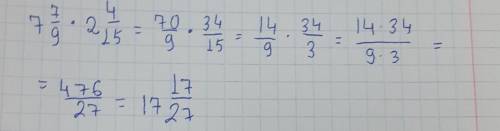 7 7/9 · 2 4/15 = 70/9 · 34/15 = 14/9 · 34/3 = 14·34/9·3 =
= 476/27 = 17 17/27